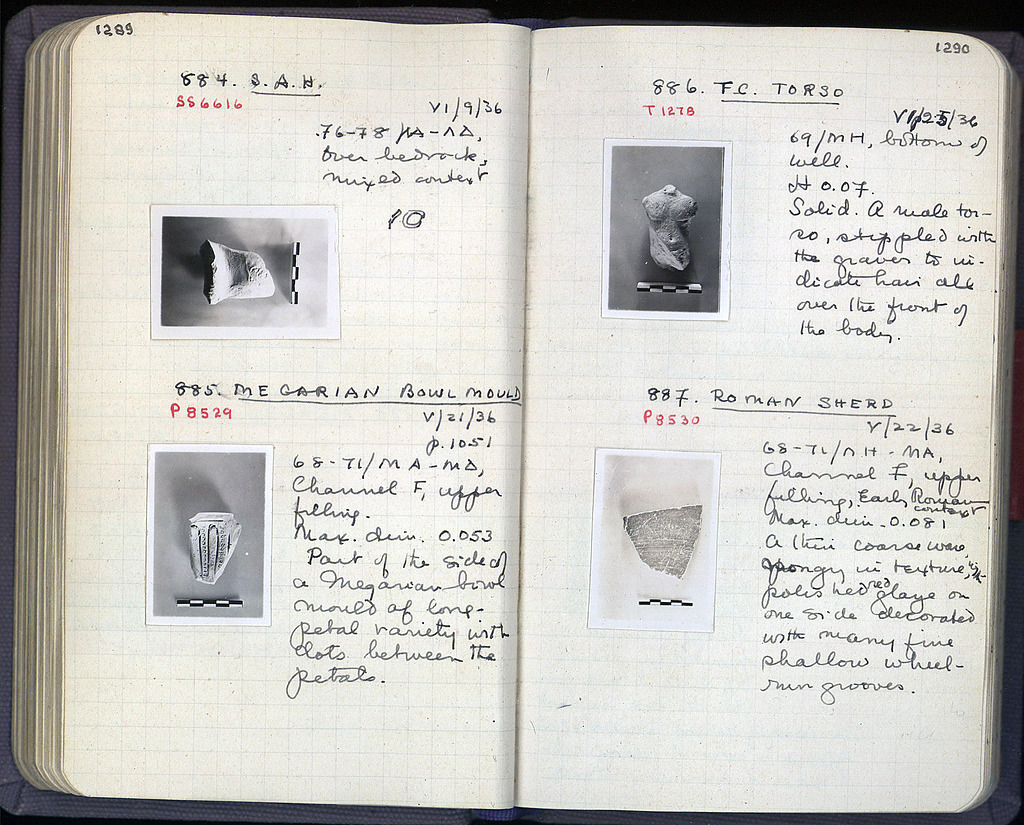 1289
884. S.A.H.
SS6616
VI/9/36
76-78/ΛΔ-ΛΔ,
Over bedrock,
mixed context
10
885. MEGARIAN BOWL MOULD
P 8529
V/21/36
p. 1051
68-71/ΜΑ-ΜΔ,
Channel F, upper
filling.
Max. dim. 0.053
Part of the side of
a Megarian bowl
mould of long-
petal variety with
dots between the
petals.
1290
886. T.C. TORSO
T 1278
VI/25/36
69/ΜΗ, bottom of
well.
H 0.07.
Solid. A male tor-
so, stippled with
the graver to in-
dicate hair all
over the front of
the body.
887. ROMAN SHERD
P 8530
V/22/36
68-71/ΜΗ-ΝΑ,
Channel F, upper
filling, Early Roman
context
Max. dim. 0.081
A thin coarse ware,
spongy in texture, with
polished red glaze on
one side decorated
with many fine
shallow wheel-
run grooves.